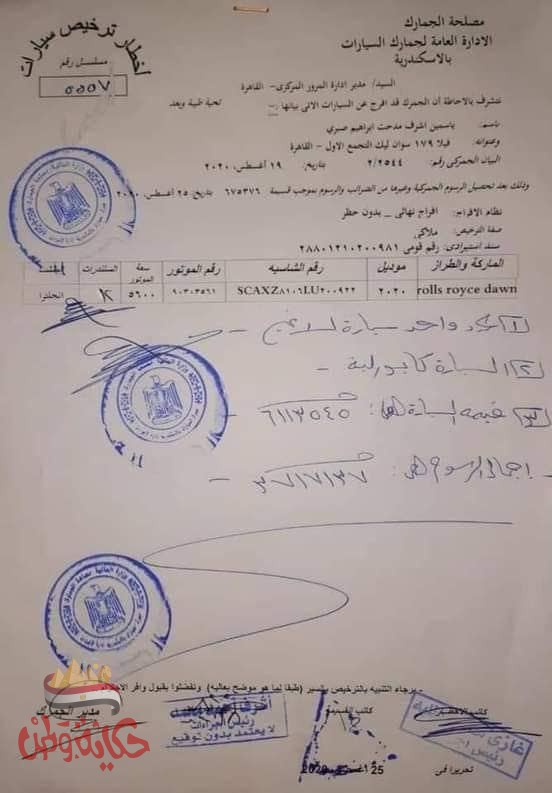 مصلحة الجمارك
الادارة العامة لجمارك السيارات
بالاسكندرية
أخطار ترخيص سيارات
مسلسل رقم
٥٥٥٧
السيد/ مدير ادارة المرور المركزى- القاهرة
تحية طيبة وبعد
نتشرف بالاحاطة أن الجمرك قد افرج عن السيارات الاتى بيانها :-
باسم: ياسمين اشرف مدحت ابراهيم صبري
وعنوانه: فيلا ١٧٩ سوان ليك التجمع الاول - القاهرة
البيان الجمركى رقم: ٢/٢٥٤٤ بتاريخ: ١٩ أغسطس، ٢٠٢٠
وذلك بعد تحصيل الرسوم الجمركية وغيرها من الضرائب والرسوم بموجب قسيمة ٦٧٥٣٧٦ بتاريخ: ٢٥ أغسطس، ٢٠٢٠
نظام الافراج: افراج نهائى _ بدون حظر
صفة الترخيص: ملاكي
سند استيرادى: رقم قومى ٢٨٨٠١٢١٠٢٠٠٩٨١
الماركة والطراز موديل رقم الشاسيه رقم الموتور سعة الموتور السلندرات المنشأ
rolls royce dawn ٢٠٢٠ SCAXZ٨١٠٦LU٢٠٠٩٢٢ ٩٠٣٠٣٥٦١ ٥٦٠٠ ١٢ انجلترا
١) عدد واحد سيارة لا غير -
٢) السيارة كابورلية -
٣) قيمة السيارة : ٦١١٣٥٤٥
- اجمالى الرسوم : ٣٧١٧١٣٧ -
برجاء التنبيه بالترخيص بالسير (طبقا لما هو موضح بعاليه) وتفضلوا بقبول وافر الاحترام
كاتب الاخطار
كاتب القسيمة
مدير الجمرك
رئيس اجراءات
لا يعتمد بدون توقيع
تحريرا فى 25 أغسطس، 2020
حكاية وطن